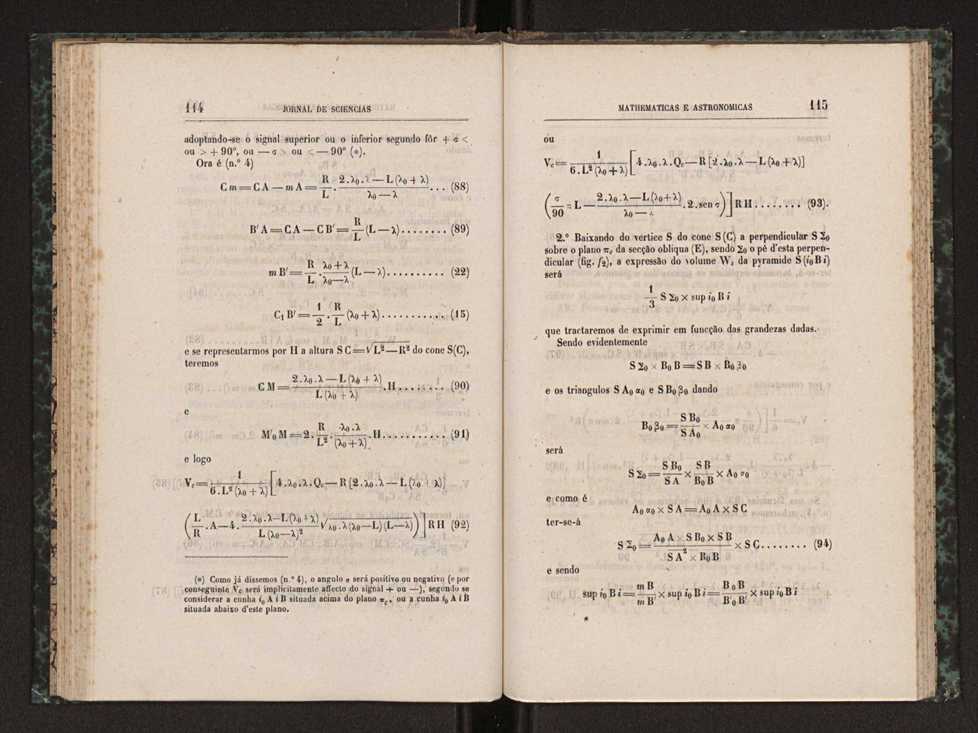 114 JORNAL DE SCIENCIAS
adoptando-se o signal superior ou o inferior segundo fôr + σ <
ou > + 90°, ou — σ > ou < — 90° (*).
Ora é (n.° 4)
C m = C A — m A = R/L . (2.λ₀.λ — L (λ₀ + λ))/(λ₀ — λ) ... (88)
B′ A = C A — C B′ = R/L (L — λ)........ (89)
m B′ = R/L . (λ₀ + λ)/(λ₀ — λ) (L — λ).......... (22)
C₁ B′ = 1/2 . R/L (λ₀ + λ)........... (15)
e se representarmos por H a altura S C = √(L² — R²) do cone S(C),
teremos
C M = (2.λ₀.λ — L (λ₀ + λ))/(L (λ₀ + λ)) . H........ (90)
e
M′₀ M = 2. R/L² . λ₀.λ/(λ₀ + λ) . H........... (91)
e logo
V꜀ = 1/(6.L² (λ₀ + λ)) [4.λ₀.λ.Q꜀ — R [2.λ₀.λ — L (λ₀ + λ)]
(L/R . A — 4. (2.λ₀.λ — L (λ₀ + λ))/(L (λ₀ — λ)²) √(λ₀.λ (λ₀ — L) (L — λ)))] R H (92)
(*) Como já dissemos (n.° 4), o angulo σ será positivo ou negativo (e por
conseguinte V꜀ será implicitamente affecto do signal + ou —), segundo se
considerar a cunha i₀ A i B situada acima do plano π꜀, ou a cunha i₀ A i B
situada abaixo d'este plano.
MATHEMATICAS E ASTRONOMICAS 115
ou
V꜀ = 1/(6.L² (λ₀ + λ)) [4.λ₀.λ.Q꜀ — R [2.λ₀.λ — L (λ₀ + λ)]
(σ/90 π L — (2.λ₀.λ — L (λ₀ + λ))/(λ₀ — λ) . 2. sen σ)] R H........ (93).
2.° Baixando do vertice S do cone S (C) a perpendicular S Σ₀
sobre o plano πₑ da secção obliqua (E), sendo Σ₀ o pé d'esta perpen-
dicular (fig. f₂), a expressão do volume Wₑ da pyramide S (i₀ B i)
será
1/3 S Σ₀ × sup i₀ B i
que tractaremos de exprimir em funcção das grandezas dadas.
Sendo evidentemente
S Σ₀ × B₀ B = S B × B₀ β₀
e os triangulos S A₀ α₀ e S B₀ β₀ dando
B₀ β₀ = S B₀/S A₀ × A₀ α₀
será
S Σ₀ = S B₀/S A × S B/B₀ B × A₀ α₀
e como é
A₀ α₀ × S A = A₀ A × S C
ter-se-á
S Σ₀ = (A₀ A × S B₀ × S B)/(S A² × B₀ B) × S C........ (94)
e sendo
sup i₀ B i = m B/m B′ × sup i₀ B i = B₀ B/B′₀ B′ × sup i₀ B i
*